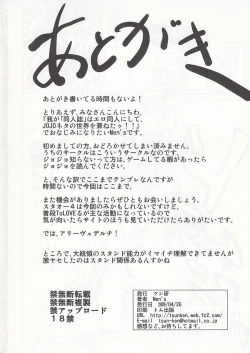 あとがき
あとがき書いてる時間もないよ！
とりあえず、みなさんこんにちわ、
『我が「同人誌」はエロ同人にして、
JOJOネタの世界を兼ねたッ！！』
でおなじみになりたいMen'sです。
初めましての方、おどろかせてしまい済みません。
うちのサークルはこういうサークルなのです。
ジョジョ知らないって方は、ゲームしてる暇があったら
ジョジョをググって下さい。
と、そんな訳でここまでテンプレなんですが
時間ないので今回はここまで、
また機会がありましたらぜひともお会いしましょう。
スタオー４は今回のみかもしれないですけど、
普段ToLOVEるが主な活動になっているので
気が向いたらサイトのほうも見ていただけたらありがたいです。
では、アリーヴェデルチ！
ところで、大統領のスタンド能力がイマイチ理解できてませんが
激ヤセしたのはスタンド関係あるんすかね
禁無断転載
禁無断複製
禁アップロード
１８禁
発行　ツン研
著者　Men's
発行日　2009/04/26
印刷　トム出版
URL. http://tsunken.web.fc2.com/
E-mail　tsun-ken@hotmail.co.jp
感想など、お待ちしています。